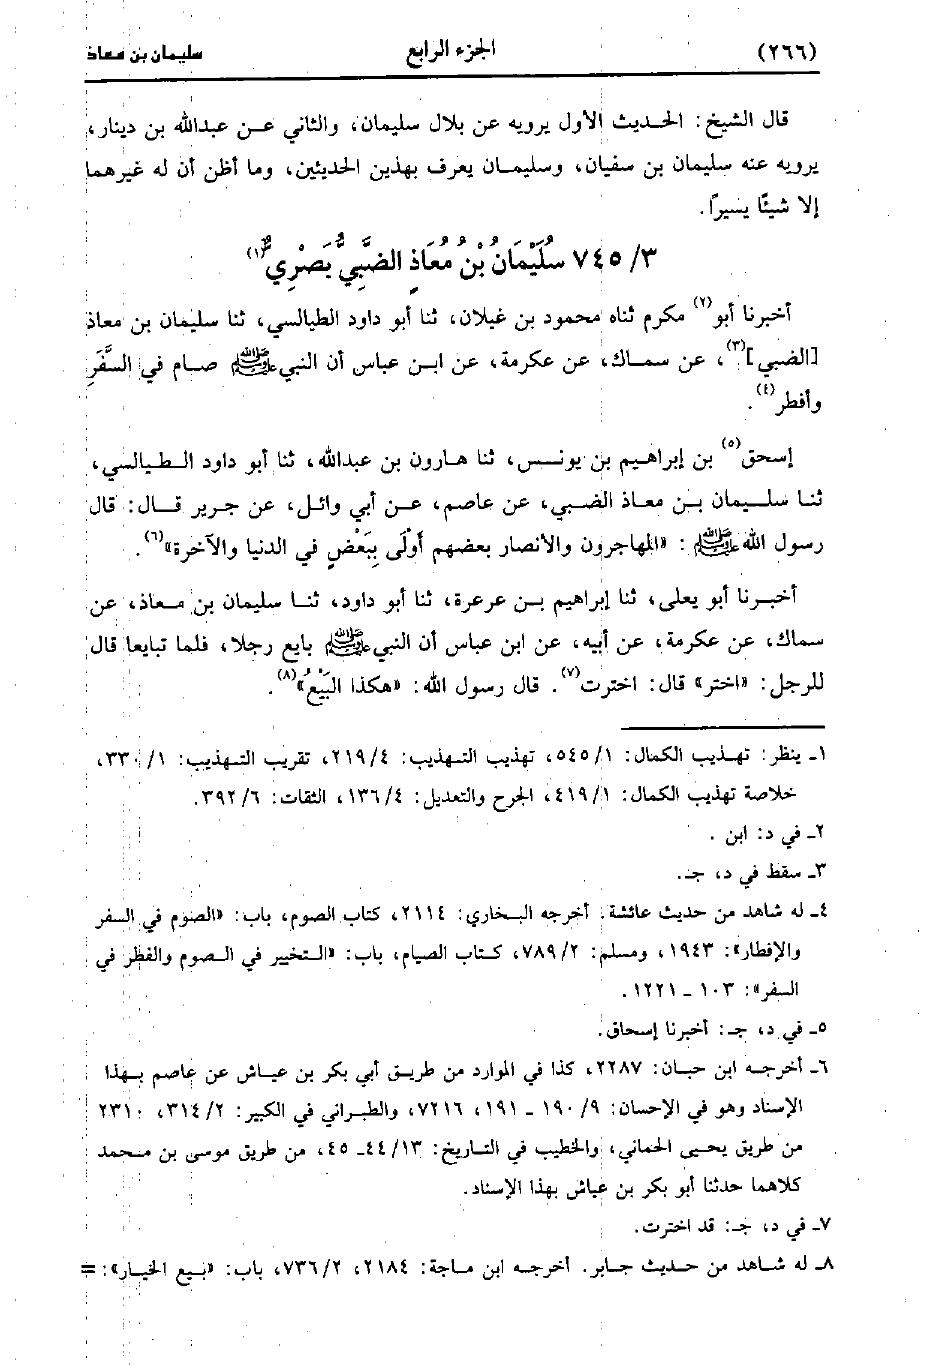 (٢٦٦) الجزء الرابع سليمان بن معاذ
قال الشيخ: الحديث الأول يرويه عن بلال سليمان، والثاني عن عبدالله بن دينار،
يرويه عنه سليمان بن سفيان، وسليمان يعرف بهذين الحديثين، وما أظن أن له غيرهما
إلا شيئًا يسيرًا.
٣/ ٧٤٥ سُلَيْمَانُ بْنُ مُعَاذٍ الضَّبِّيُّ بَصْرِيٌّ(١)
أخبرنا أبو(٢) مكرم ثناه محمود بن غيلان، ثنا أبو داود الطيالسي، ثنا سليمان بن معاذ
[الضبي](٣)، عن سماك، عن عكرمة، عن ابن عباس أن النبي ﷺ صام في السَّفَرِ
وأفطر(٤).
إسحق(٥) بن إبراهيم بن يونس، ثنا هارون بن عبدالله، ثنا أبو داود الطيالسي،
ثنا سليمان بن معاذ الضبي، عن عاصم، عن أبي وائل، عن جرير قال: قال
رسول الله ﷺ: «المهاجرون والأنصار بعضهم أَوْلَى بِبَعْضٍ في الدنيا والآخرة»(٦).
أخبرنا أبو يعلى، ثنا إبراهيم بن عرعرة، ثنا أبو داود، ثنا سليمان بن معاذ، عن
سماك، عن عكرمة، عن أبيه، عن ابن عباس أن النبي ﷺ بايع رجلا، فلما تبايعا قال
للرجل: «اختر» قال: اخترت(٧). قال رسول الله: «هكذا البَيْعُ»(٨).
١ـ ينظر: تهذيب الكمال: ١/ ٥٤٥، تهذيب التهذيب: ٤/ ٢١٩، تقريب التهذيب: ١/ ٣٣٠،
خلاصة تهذيب الكمال: ١/ ٤١٩، الجرح والتعديل: ٤/ ١٣٦، الثقات: ٦/ ٣٩٢.
٢ـ في د: ابن .
٣ـ سقط في د، جـ.
٤ـ له شاهد من حديث عائشة. أخرجه البخاري: ٢١١٤، كتاب الصوم، باب: «الصوم في السفر
والإفطار»: ١٩٤٣، ومسلم: ٢/ ٧٨٩، كتاب الصيام، باب: «التخيير في الصوم والفطر في
السفر»: ١٠٣ ـ ١٢٢١.
٥ـ في د، جـ: أخبرنا إسحاق.
٦ـ أخرجه ابن حبان: ٢٢٨٧، كذا في الموارد من طريق أبي بكر بن عياش عن عاصم بهذا
الإسناد وهو في الإحسان: ٩/ ١٩٠ ـ ١٩١، ٧٢١٦، والطبراني في الكبير: ٢/ ٣١٤، ٢٣١٠
من طريق يحيى الحماني، والخطيب في التاريخ: ١٣/ ٤٤ـ ٤٥، من طريق موسى بن محمد
كلاهما حدثنا أبو بكر بن عياش بهذا الإسناد.
٧ـ في د، جـ: قد اخترت.
٨ـ له شاهد من حديث جابر. أخرجه ابن ماجة: ٢١٨٤، ٢/ ٧٣٦، باب: «بيع الخيار»: =